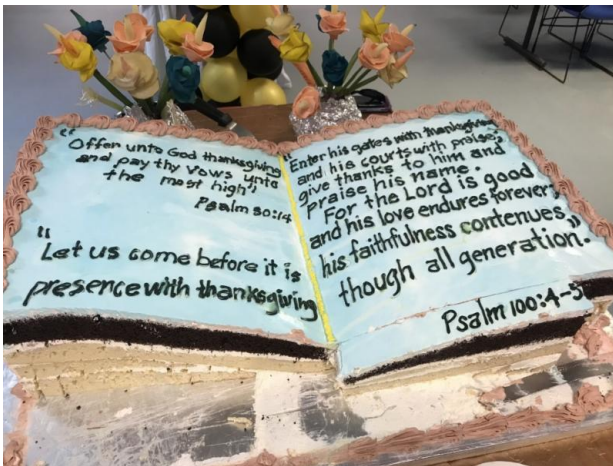 "Offer unto God thanksgiving
and pay thy vows unto
the most high"
Psalm 50:14
"Let us come before it is
presence with thanksgiving
"Enter his gates with thanksgiving
and his courts with praise;
give thanks to him and
praise his name.
For the Lord is good
and his love endures forever;
his faithfulness contenues
though all generation."
Psalm 100:4-5